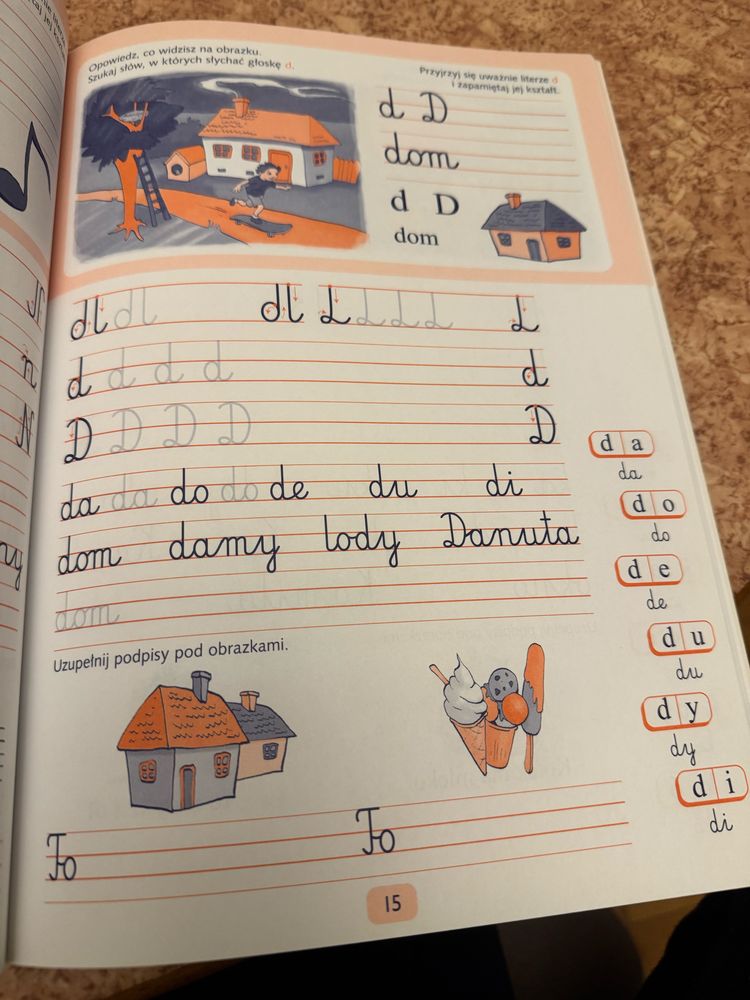 Opowiedz, co widzisz na obrazku.
Szukaj słów, w których słychać głoskę d.
Przyjrzyj się uważnie literze d
i zapamiętaj jej kształt.
d D
dom
d D
dom
d d d d d
D D D D D
da da do do de du di
dom damy lody Danuta
dom
d a
da
d o
do
d e
de
d u
du
d y
dy
d i
di
Uzupełnij podpisy pod obrazkami.
To To
15